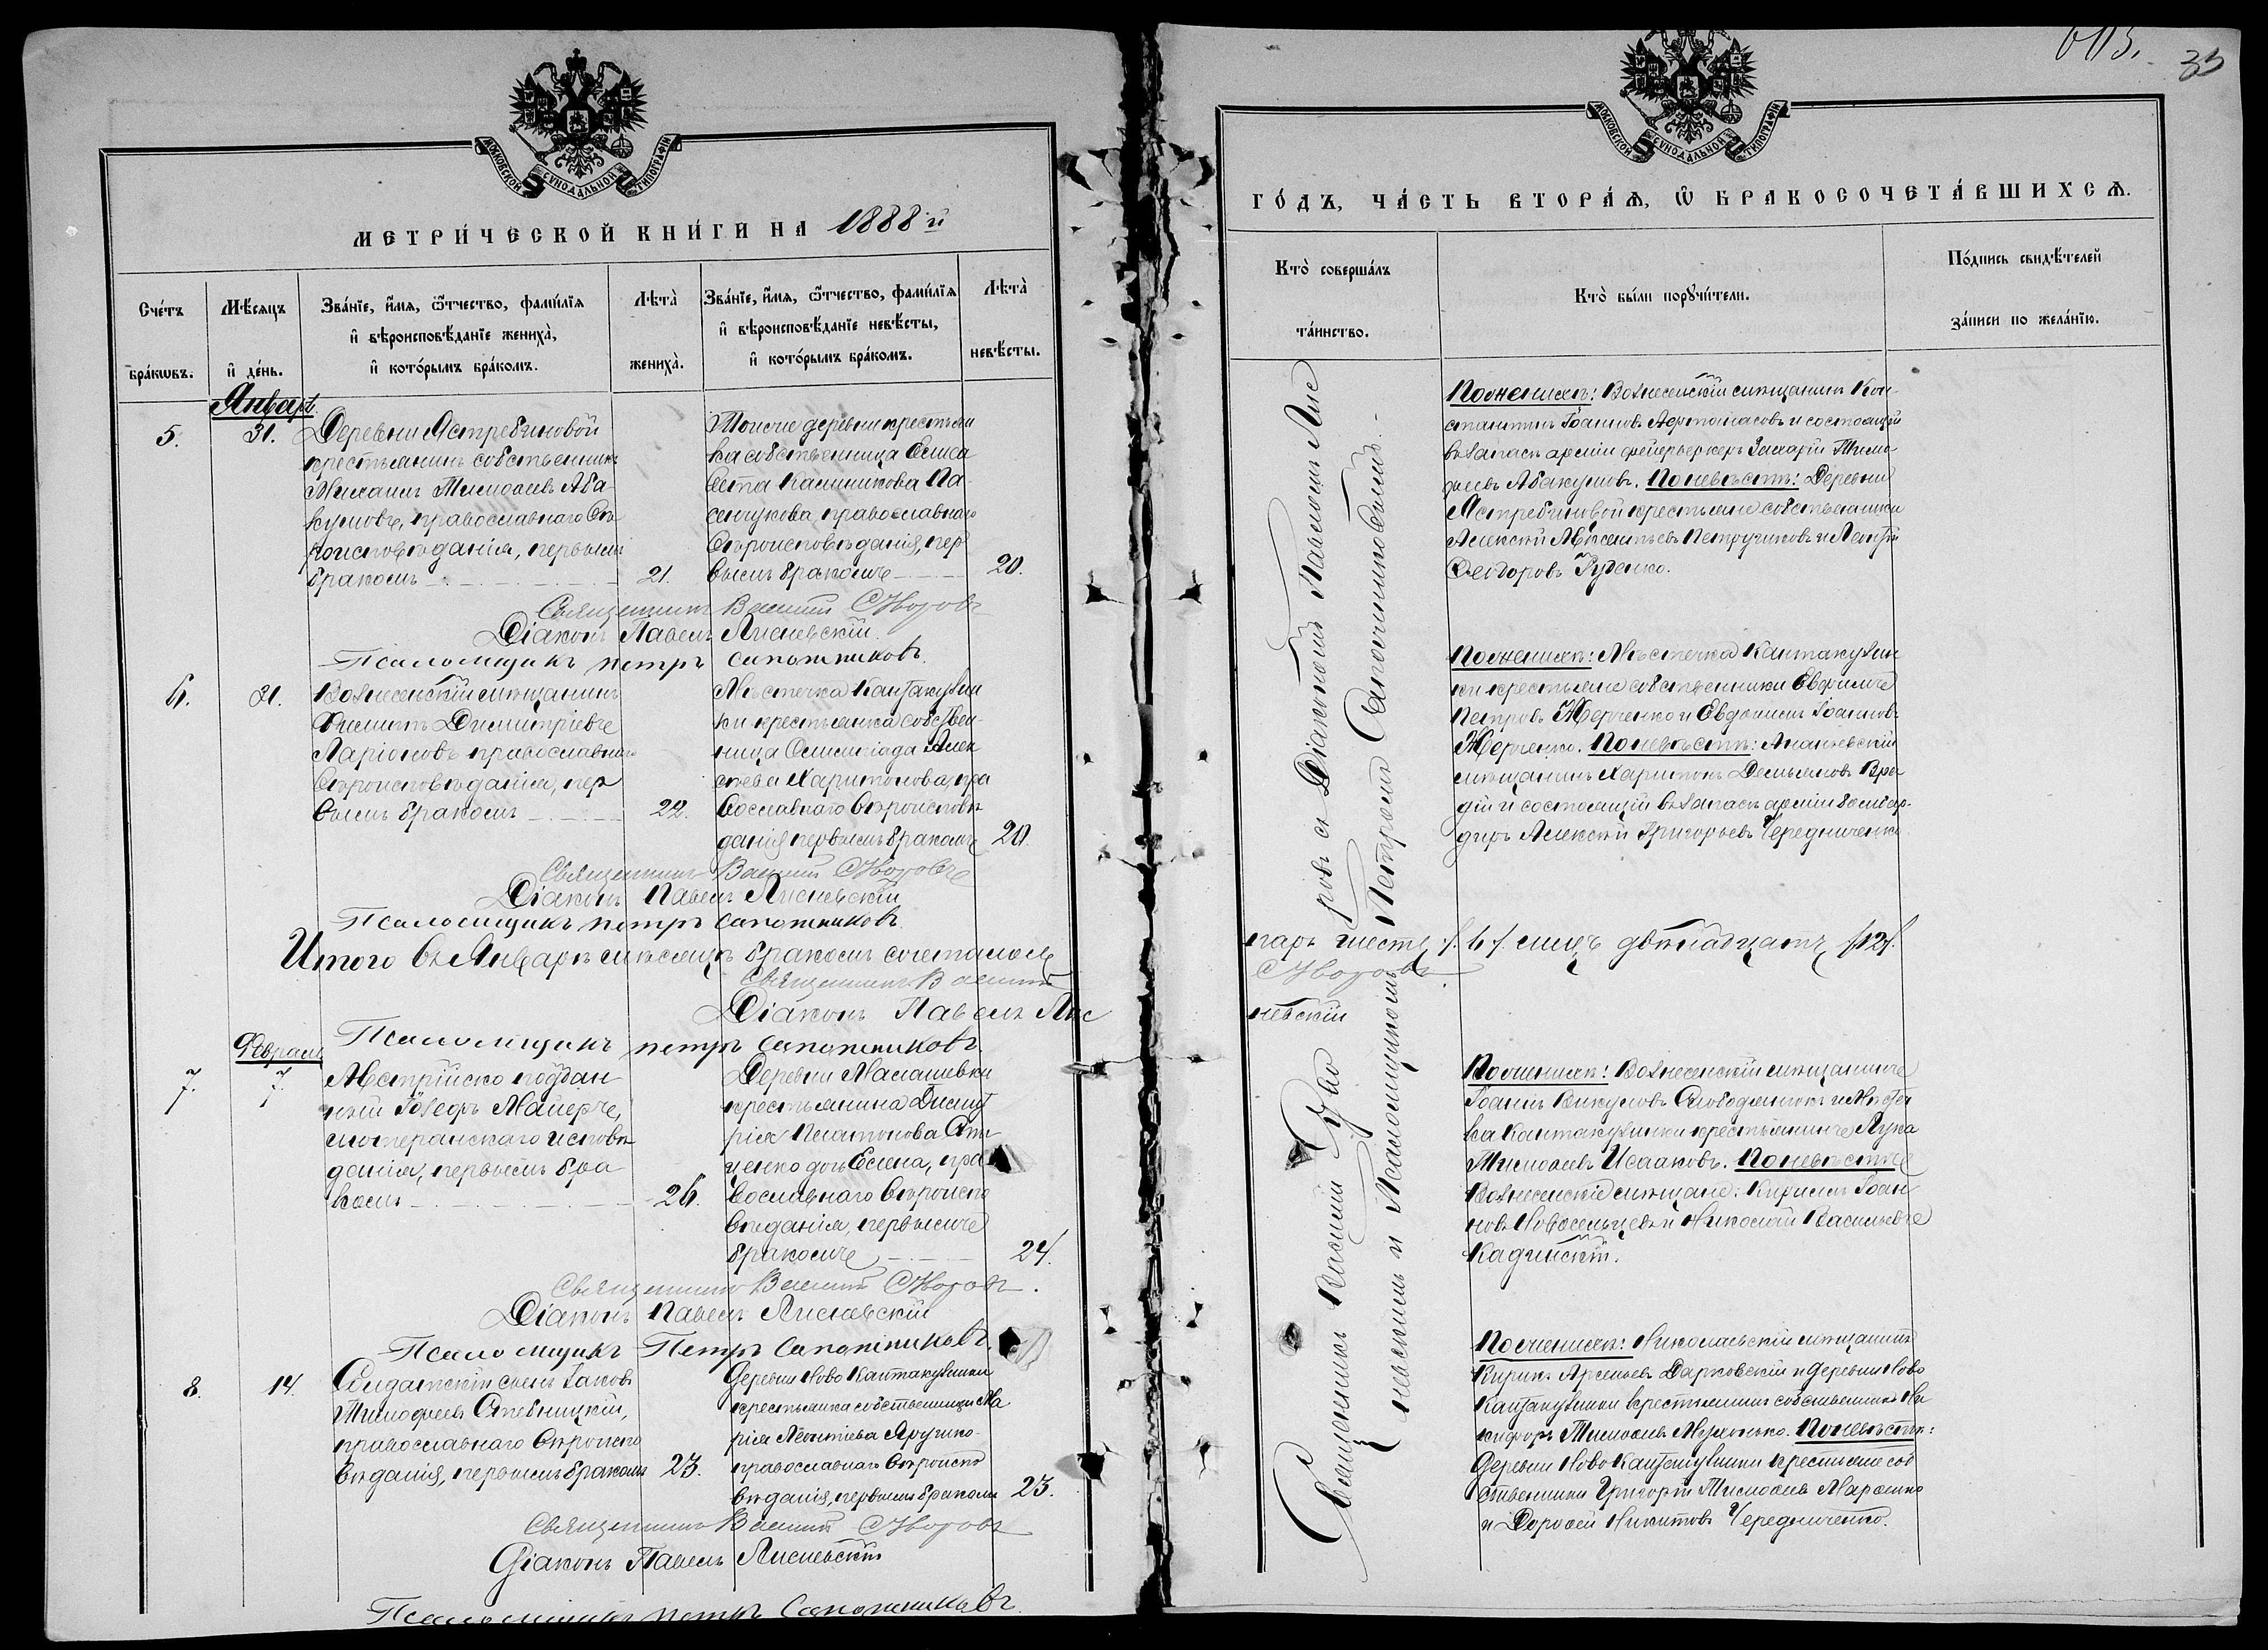 МОСКОВСКОЙ СУНОДАЛЬНОЙ ТИПОГРАФІИ
МЕТРИ́ЧЕСКОЙ КНИ́ГИ НА 1888 й
Сче́тъ бра́кωвъ.
Мѣ́сяцъ и҆ де́нь.
Зва́нїе, и҆́мѧ, ѻ҆́тчество, фами́лїѧ
и҆ вѣроисповѣ́данїе женихà,
и҆ кото́рымъ бра́комъ.
Лѣтà женихà.
Зва́нїе, и҆́мѧ, ѻ҆́тчество, фами́лїѧ
и҆ вѣроисповѣ́данїе невѣ́сты,
и҆ кото́рымъ бра́комъ.
Лѣтà невѣ́сты.
Январь
5.
31.
Деревни Ястребиновой
крестьянинъ собственникъ
Михаилъ Тимоѳеевъ Аба
кумовъ, православнаго вѣ
роисповѣданія, первымъ
бракомъ
21.
Тойже деревни крестьян
ка собственница Елиса
вета Калиникова Па
сичукова, православнаго
вѣроисповѣданія, пер
вымъ бракомъ
20.
Священникъ Василій
Діаконъ Павелъ Лисневскій.
Псаломщикъ Петръ Сапожниковъ.
6.
31.
Вознесенскій мѣщанинъ
Филиппъ Димитріевъ
Ларіоновъ православнаго
вѣроисповѣданія, пер
вымъ бракомъ
22.
Мѣстечка Кантакузин
ки крестьянка собствен
ница Олимпіада Алек
сѣева Харитонова, пра
вославнаго вѣроисповѣ
данія первымъ бракомъ
20.
Священникъ Василій
Діаконъ Павелъ Лисневскій
Псаломщикъ Петръ Сапожниковъ.
Итого въ Январѣ мѣсяцѣ бракомъ сочеталось
Священникъ Василій
Діаконъ Павелъ Лис
Псаломщикъ Петръ Сапожниковъ.
Февраль
7.
7.
Австрійско поддан
ный Іозефъ Майеръ,
лютеранскаго исповѣ
данія, первымъ бра
комъ
26.
Деревни Малашевки
крестьянина Димит
рія Платонова
дочь Елена, пра
вославнаго вѣроиспо
вѣданія, первымъ
бракомъ
24.
Священникъ Василій
Діаконъ Павелъ Лисневскій
Псаломщикъ Петръ Сапожниковъ.
8.
14.
Солдатскій сынъ Іаковъ
Тимоѳеевъ Стебницкій,
православнаго вѣроиспо
вѣданія, первымъ бракомъ
23.
Деревни Ново Кантакузинки
крестьянка собственница Ма
рія Леонтіева
православнаго вѣроиспо
вѣданія, первымъ бракомъ
23.
Священникъ Василій
Діаконъ Павелъ Лисневскій
Псаломщикъ Петръ Сапожниковъ.
33
МОСКОВСКОЙ СУНОДАЛЬНОЙ ТИПОГРАФІИ
ГО́ДЪ, ЧА́СТЬ ВТОРА́Ѧ, Ѡ҆ БРАКОСОЧЕТА́ВШИХСѦ.
Ктò соверша́лъ
та́инство.
Ктò бы́ли порꙋчи́тели.
По́дпись свидѣ́телей
за́писи по жела́нїю.
Священникъ Василій
съ Діакономъ Павломъ Лис
невскимъ и Псаломщикомъ
Петромъ Сапожниковымъ.
По женихѣ: Вознесенскій мѣщанинъ Кон
стантинъ Іоанновъ Афтонасовъ и состоящій
въ запасѣ арміи фейерверкеръ Захарій Тимо
ѳеевъ Абакумовъ. По невѣстѣ: Деревни
Ястребиновой крестьяне собственники
Алексѣй Авксентьевъ Петручиковъ и Леонтій
Ѳеодоровъ Руденко.
По женихѣ: Мѣстечка Кантакузин
ки крестьяне собственники Евфимъ
Петровъ Жерченко и Евдокимъ Іоанновъ
Жерченко. По невѣстѣ: Ананьевскій
мѣщанинъ Харитонъ Демьяновъ
и состоящій въ запасѣ арміи бомбар
диръ Алексѣй Григорьевъ Чередниченко
паръ шесть /6/ лицъ двѣнадцать /12/.
невскій
По женихѣ: Вознесенскій мѣщанинъ
Іоаннъ Викуловъ Слободянюкъ и Мѣстеч
ка Кантакузинки крестьянинъ Лука
Тимоѳеевъ Исааковъ. По невѣстѣ
Вознесенскіе мѣщане: Кириллъ Іоан
новъ Новосельцевъ и Николай Васильевъ
Кадинскій.
По женихѣ: Николаевскій мѣщанинъ
Кирикъ Арсеньевъ Дарковскій и деревни Ново
Кантакузинки крестьянинъ собственникъ Ни
кифоръ Тимоѳеевъ. По невѣстѣ:
Деревни Ново Кантакузинки крестьяне соб
ственники Григорій Тимоѳеевъ Марченко
и Дороѳей Никитовъ Чередниченко.